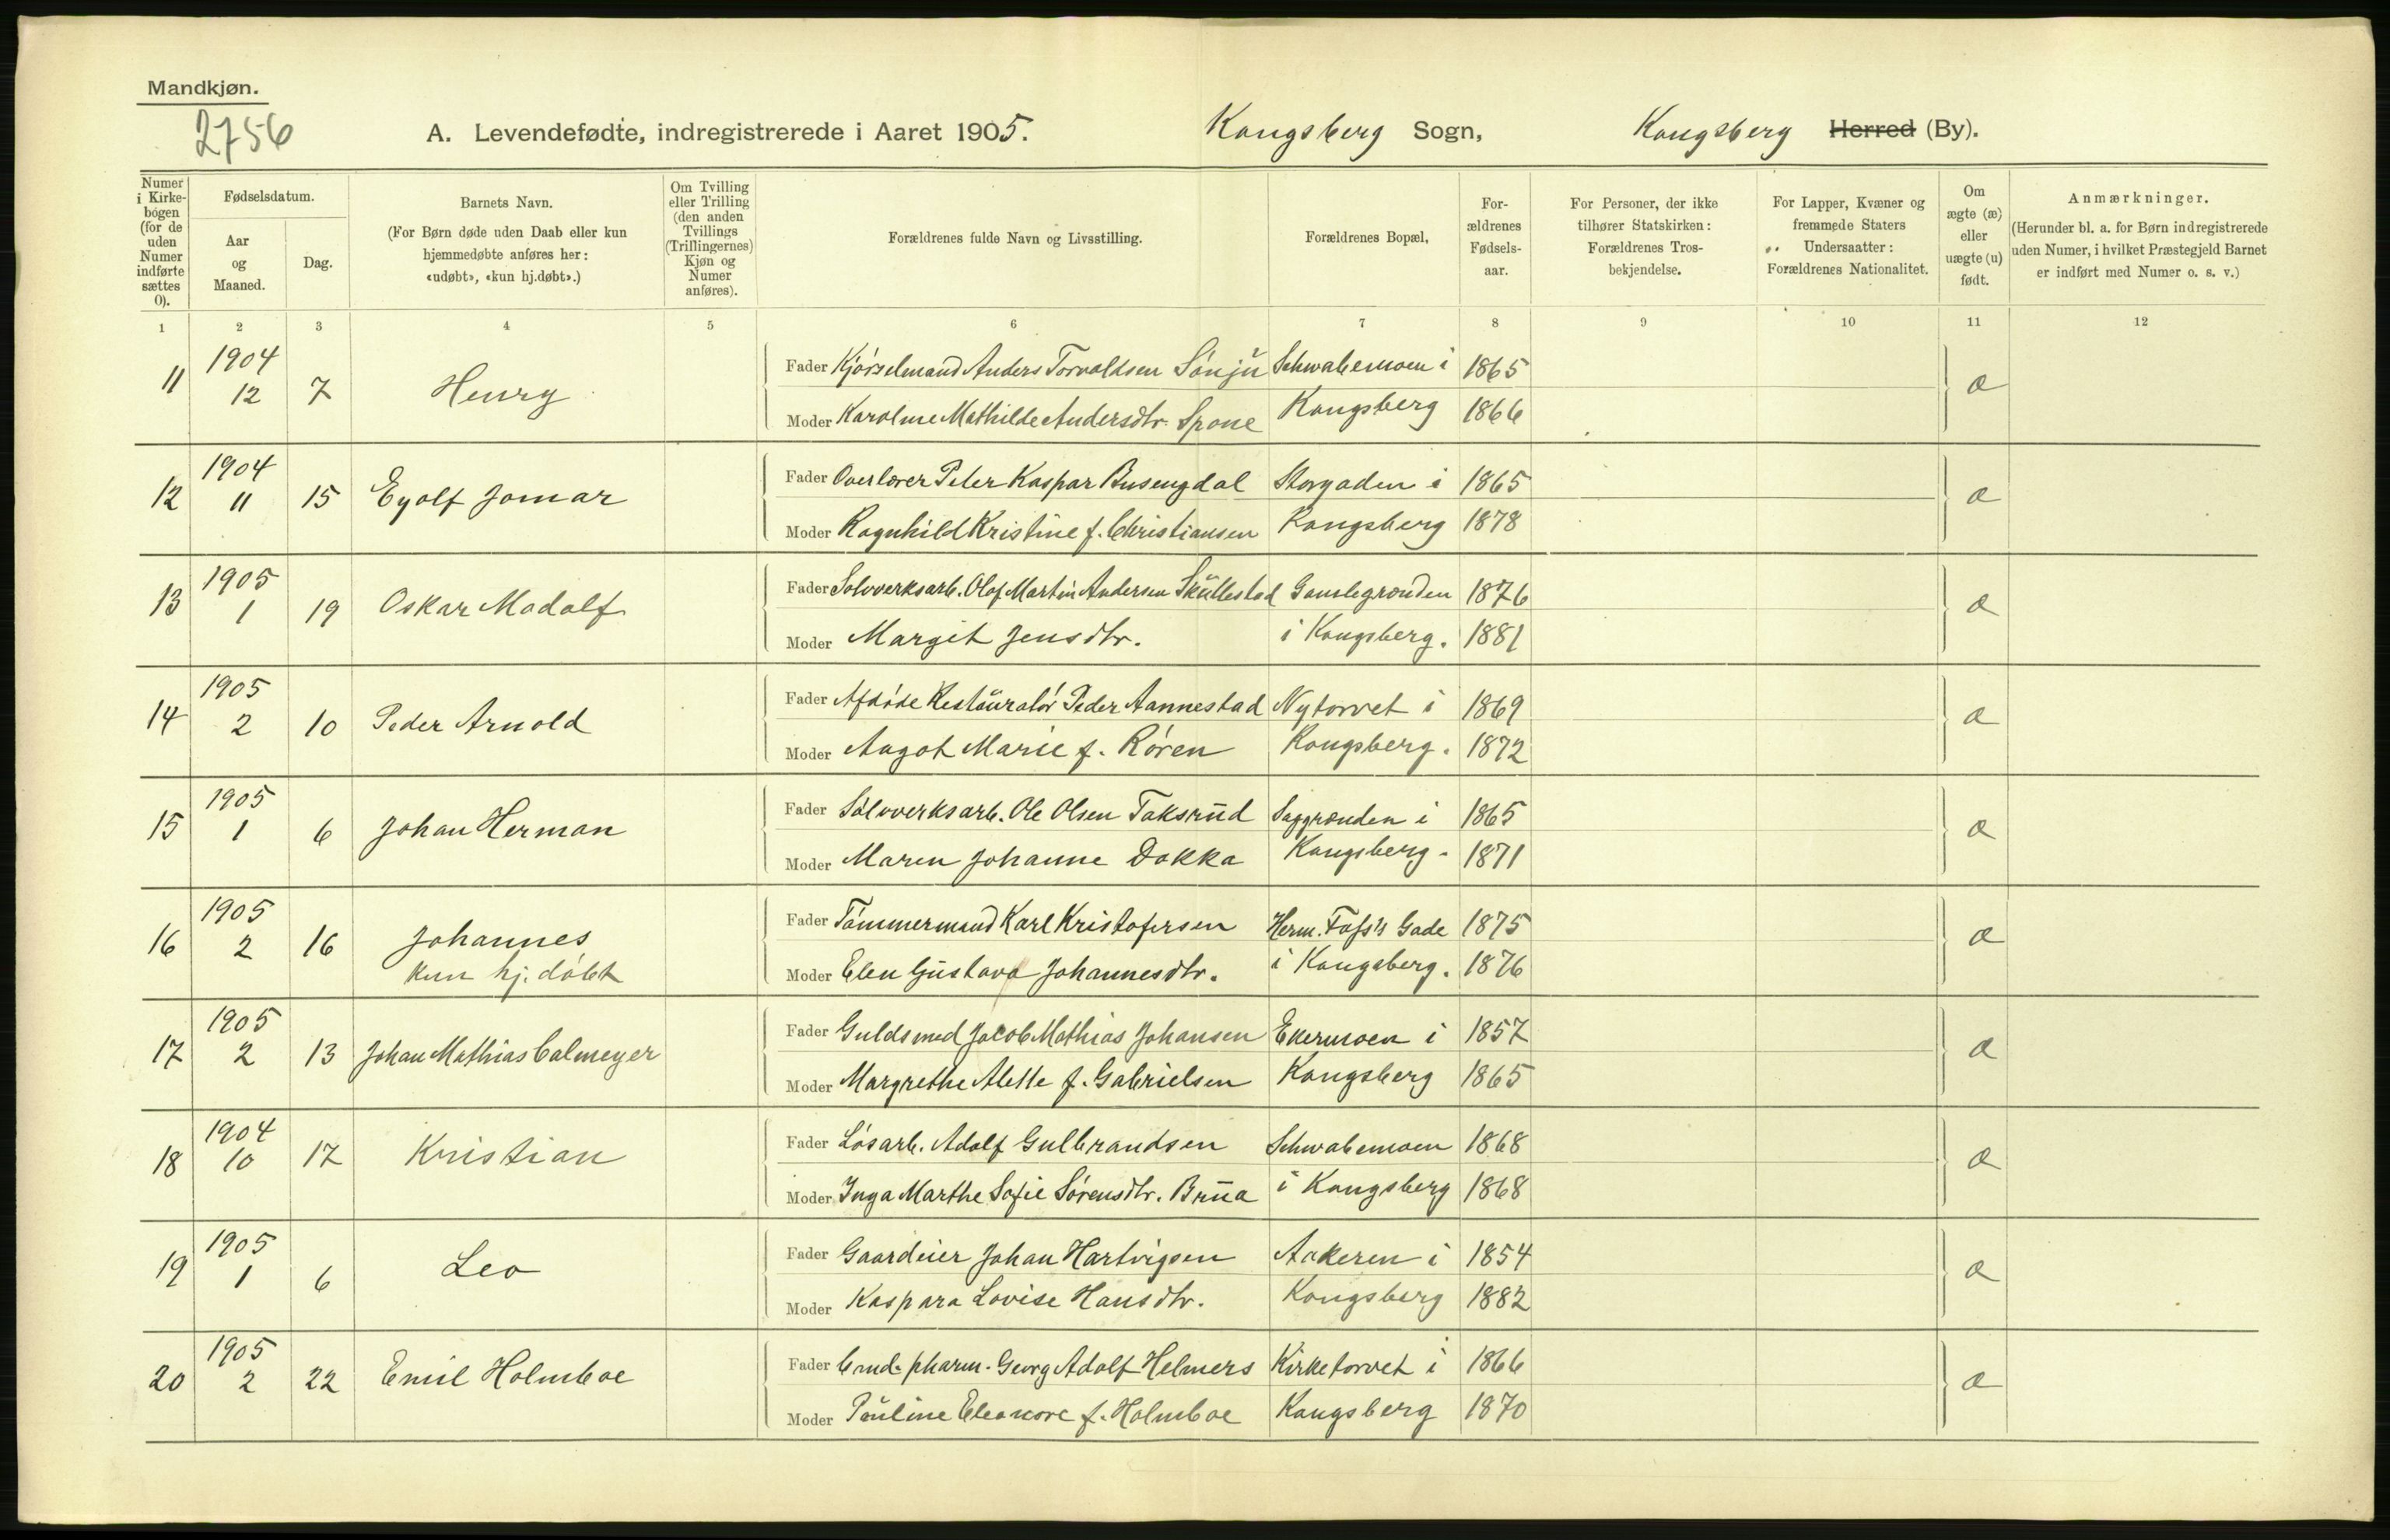 Mandkjøn.
2756
A. Levendefødte, indregistrerede i Aaret 1905. Kongsberg Sogn, Kongsberg Herred (By).
Numer i Kirkebogen (for de uden Numer indførte sættes 0).
Fødselsdatum.
Aar og Maaned.
Dag.
Barnets Navn.
(For Børn døde uden Daab eller kun hjemmedøbte anføres her: «udøbt», «kun hj.døbt».)
Om Tvilling eller Trilling (den anden Tvillings (Trillingernes) Kjøn og Numer anføres).
Forældrenes fulde Navn og Livsstilling.
Forældrenes Bopæl,
Forældrenes Fødselsaar.
For Personer, der ikke tilhører Statskirken: Forældrenes Trosbekjendelse.
For Lapper, Kvæner og fremmede Staters Undersaatter: Forældrenes Nationalitet.
Om ægte (æ) eller uægte (u) født.
Anmærkninger.
(Herunder bl. a. for Børn indregistrerede uden Numer, i hvilket Præstegjeld Barnet er indført med Numer o. s. v.)
1 2 3 4 5 6 7 8 9 10 11 12
11 1904 12 7 Henry
Fader Kjørselmand Anders Torvaldsen Sønju Schwabemoen i 1865 æ
Moder Karoline Mathilde Andersdtr. Spone Kongsberg 1866
12 1904 11 15 Eyolf Jomar
Fader Overlærer Peter Kaspar Busengdal Storgaden i 1865 æ
Moder Ragnhild Kristine f. Christiansen Kongsberg 1878
13 1905 1 19 Oskar Madolf
Fader Solvverksarb. Olaf Martin Andersen Skullestad Gamlegrønden 1876 æ
Moder Margit Jensdtr. i Kongsberg. 1881
14 1905 2 10 Peder Arnold
Fader Afdøde Restauratør Peder Aannestad Nytorvet i 1869 æ
Moder Aagot Marie f. Røren Kongsberg. 1872
15 1905 1 6 Johan Herman
Fader Sølvverksarb. Ole Olsen Taksrud Saggrænden i 1865 æ
Moder Maren Johanne Dokka Kongsberg. 1871
16 1905 2 16 Johannes
kun hj. døbt
Fader Tømmermand Karl Kristofersen Herm. Foss's Gade 1875 æ
Moder Elen Gustava Johannesdtr. i Kongsberg. 1876
17 1905 2 13 Johan Mathias Calmeyer
Fader Guldsmed Jacob Mathias Johansen Ekermoen i 1857 æ
Moder Margrethe Alette f. Gabrielsen Kongsberg 1865
18 1904 10 17 Kristian
Fader Løsarb. Adolf Gulbrandsen Schwabemoen 1868 æ
Moder Inga Marthe Sofie Sørensdtr. Brua i Kongsberg 1868
19 1905 1 6 Leo
Fader Gaardeier Johan Hartvigsen Aakeren i 1854 æ
Moder Kaspara Lovise Hansdtr. Kongsberg 1882
20 1905 2 22 Emil Holmboe
Fader Cand. pharm. Georg Adolf Helmers Kirketorvet i 1866 æ
Moder Pauline Eleonore f. Holmboe Kongsberg 1870